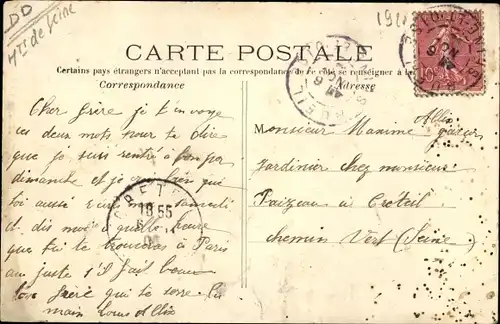 DD
Hts de Seine
CARTE POSTALE
Certains pays étrangers n'acceptant pas la correspondance de ce côté se renseigner à la
Correspondance
Adresse
Cher frère je t'envoye
ces deux mots pour te dire
que je suis rentré a bon por
dimanche et je bien que
toi aussi samedi
et dis moi a quelle heure
que tu te trouveras à Paris
au juste s'il fait beau
ton frère qui te serre la
main Louis Allix
Allix
Monsieur Maxime garçon
Jardinier chez monsieur
Paizeau à Créteil
chemin Vert (Seine)
RUEIL
CRETEIL
18 55
10